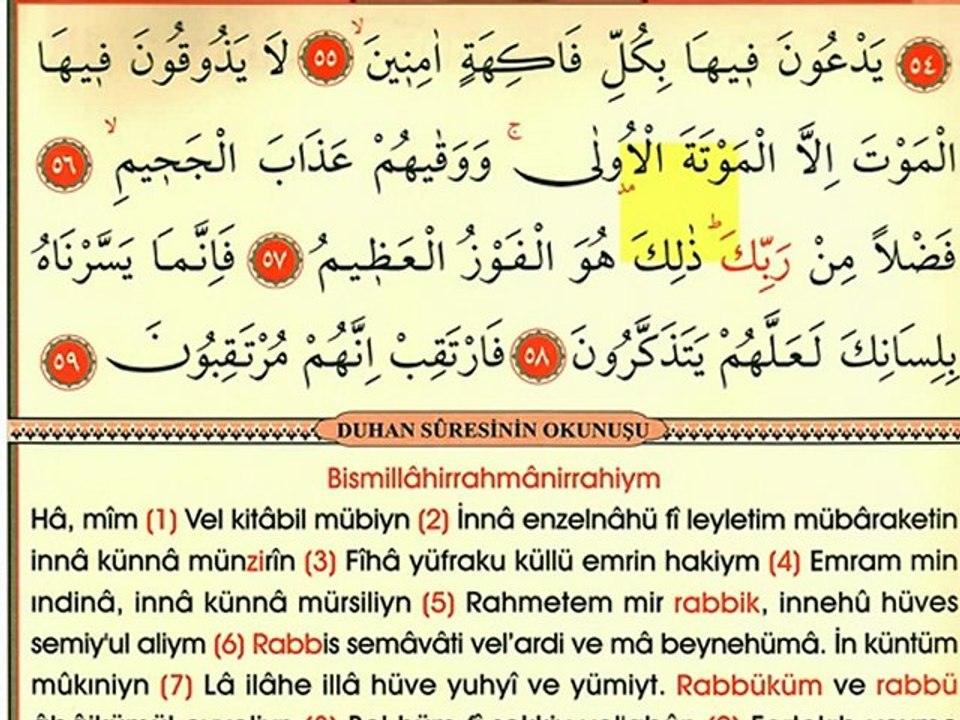 ﴿٥٤﴾ يَدْعُونَ ف۪يهَا بِكُلِّ فَاكِهَةٍ اٰمِن۪ينَۙ ﴿٥٥﴾ لَا يَذُوقُونَ ف۪يهَا
الْمَوْتَ اِلَّا الْمَوْتَةَ الْاُو۫لٰىۚ وَوَقٰيهُمْ عَذَابَ الْجَح۪يمِۙ ﴿٥٦﴾
فَضْلاً مِنْ رَبِّكَۜ ذٰلِكَ هُوَ الْفَوْزُ الْعَظ۪يمُ ﴿٥٧﴾ فَاِنَّمَا يَسَّرْنَاهُ
بِلِسَانِكَ لَعَلَّهُمْ يَتَذَكَّرُونَ ﴿٥٨﴾ فَارْتَقِبْ اِنَّهُمْ مُرْتَقِبُونَ ﴿٥٩﴾
DUHAN SÛRESİNİN OKUNUŞU
Bismillâhirrahmânirrahiym
Hâ, mîm (1) Vel kitâbil mübiyn (2) İnnâ enzelnâhü fî leyletim mübâraketin
innâ künnâ münzirîn (3) Fîhâ yüfraku küllü emrin hakiym (4) Emram min
ındinâ, innâ künnâ mürsiliyn (5) Rahmetem mir rabbik, innehû hüves
semiy'ul aliym (6) Rabbis semâvâti vel'ardi ve mâ beynehümâ. İn küntüm
mûkıniyn (7) Lâ ilâhe illâ hüve yuhyî ve yümiyt. Rabbüküm ve rabbü